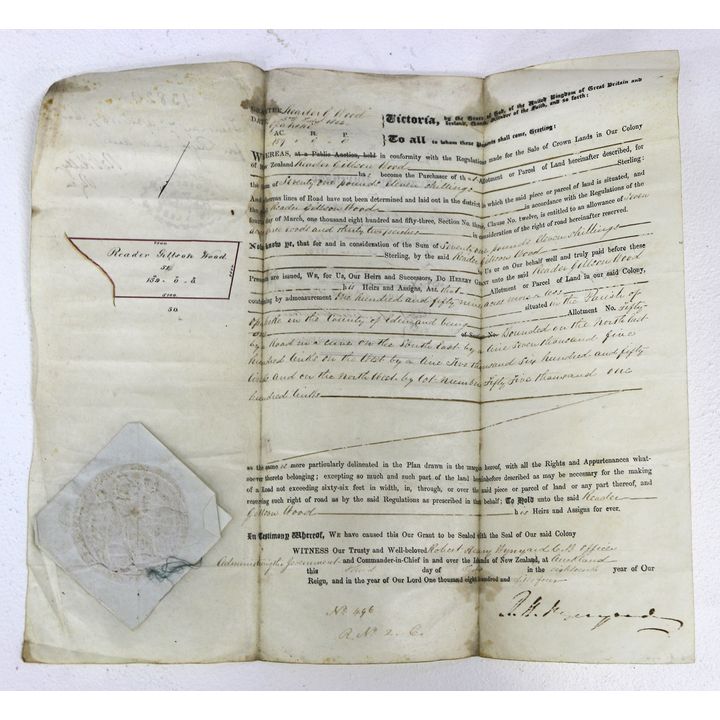 Reader G. Wood
AC. R. P.
159 0 0
Victoria, by the Grace of God, of the United Kingdom of Great Britain and
Ireland,
Defender of the Faith, and so forth:
To all to whom these Presents shall come, Greeting:
WHEREAS, at a Public Auction, held in conformity with the Regulations made for the Sale of Crown Lands in Our Colony
of New Zealand Reader Gillson Wood
has become the Purchaser of that Allotment or Parcel of Land hereinafter described, for
the sum of Seventy one pounds eleven shillings Sterling:
And whereas lines of Road have not been determined and laid out in the district in which the said piece or parcel of land is situated, and
Reader Gillson Wood in accordance with the Regulations of the
day of March, one thousand eight hundred and fifty-three, Section No. three, Clause No. twelve, is entitled to an allowance of Seven
acres three roods and thirty two perches in consideration of the right of road hereinafter reserved.
Now know ye, that for and in consideration of the Sum of Seventy one pounds Eleven shillings
Sterling, by the said Reader Gillson Wood
Us or on Our behalf well and truly paid before these
Presents are issued, WE, for Us, Our Heirs and Successors, DO HEREBY GRANT unto the said Reader Gillson Wood
his Heirs and Assigns, ALL that Allotment or Parcel of Land in our said Colony,
containing by admeasurement One hundred and fifty nine acres more or less
situated in the Parish of
in the County of Eden and being Allotment No. Fifty
of Section No. Bounded on the North East
by a Road in a curve on the South East by a line Seven thousand five
hundred links on the West by a line Five thousand Six hundred and fifty
links and on the North West by Lot number Fifty Five thousand one
hundred links
as the same is more particularly delineated in the Plan drawn in the margin hereof, with all the Rights and Appurtenances what-
soever thereto belonging; excepting so much and such part of the land hereinbefore described as may be necessary for the making
of a Road not exceeding sixty-six feet in width, in, through, or over the said piece or parcel of land or any part thereof, and
reserving such right of road as by the said Regulations as prescribed in that behalf; To Hold unto the said Reader
Gillson Wood his Heirs and Assigns for ever.
In Testimony Whereof, We have caused this Our Grant to be Sealed with the Seal of Our said Colony
WITNESS Our Trusty and Well-beloved Robert Henry Wynyard C.B. Officer
Administering the Government and Commander-in-Chief in and over the Islands of New Zealand, at Auckland
this Third day of in the eighteenth year of Our
Reign, and in the year of Our Lord One thousand eight hundred and fifty four
R. H. Wynyard
No. 496
R. No. 2. C.
Reader Gillson Wood.
159 - 0 - 0
50